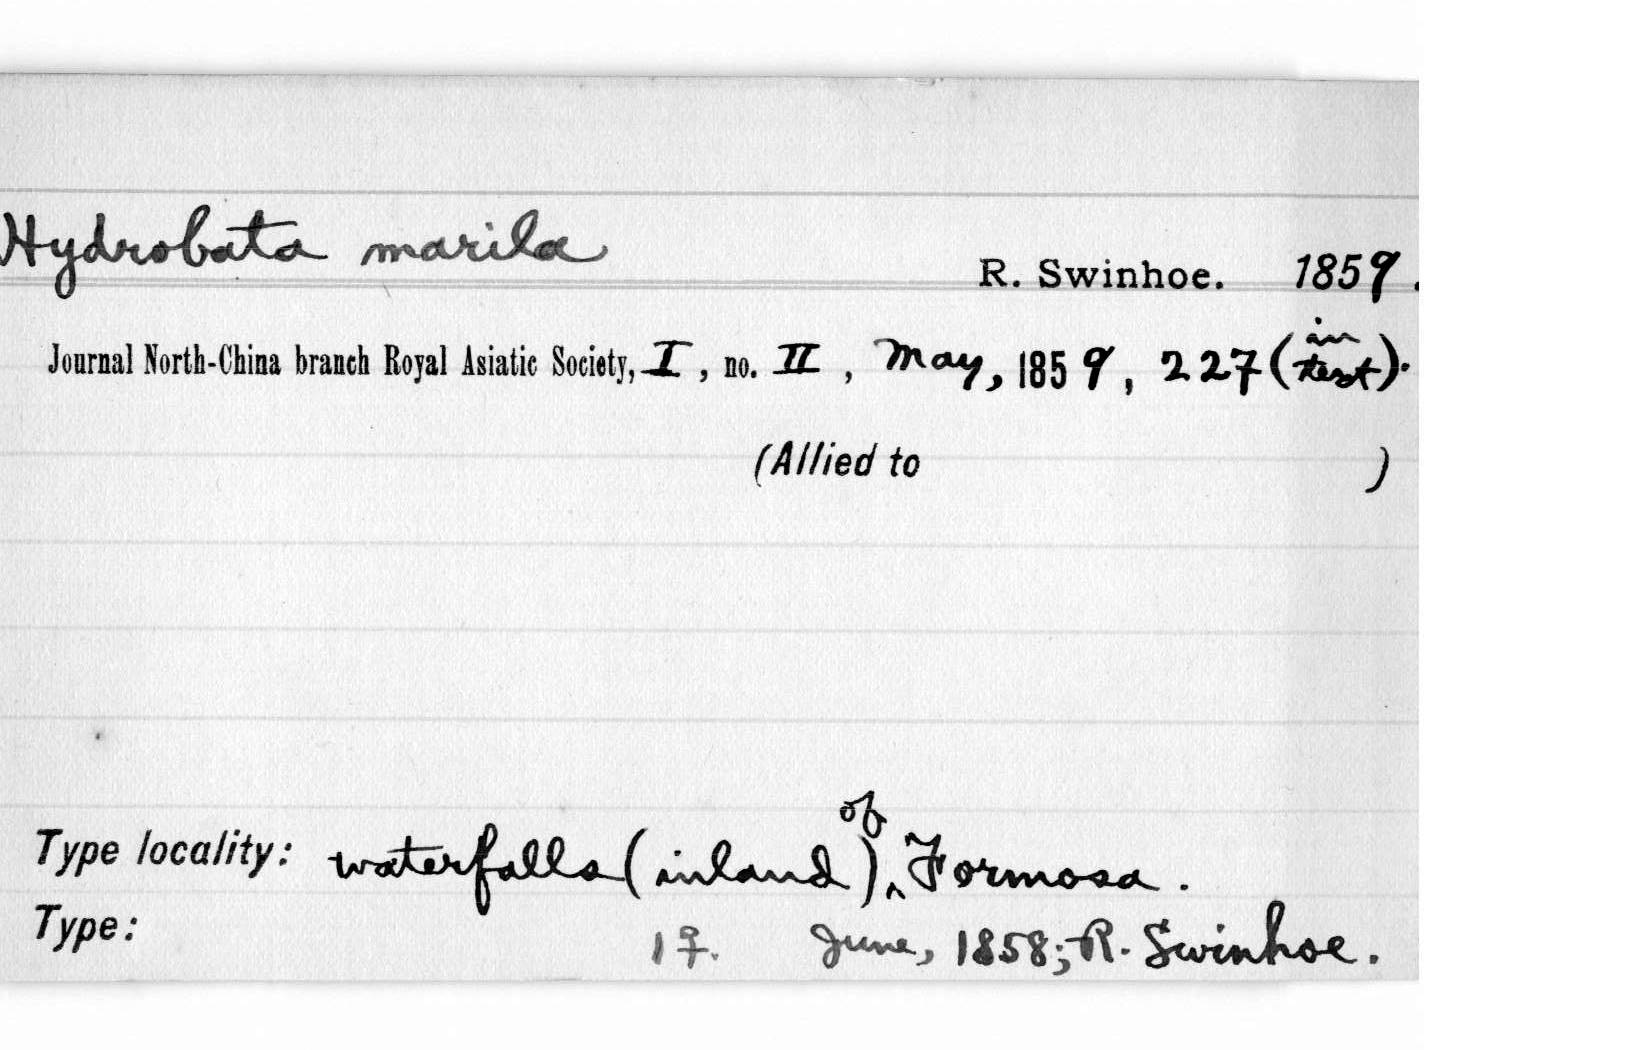 Hydrobata marila
R. Swinhoe. 1859.
Journal North-China branch Royal Asiatic Society, I, no. II, May, 1859, 227 (in text).
(Allied to )
Type locality: waterfalls (inland) of Formosa.
Type: 1♀. June, 1858; R. Swinhoe.